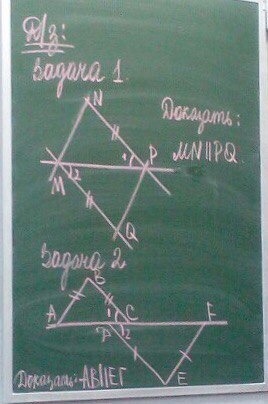 Д/з:
Задача 1.
N
Доказать:
MN||PQ.
1
P
M
2
Q
Задача 2
B
A
1
C
F
D
2
E
Доказать: AB||EF